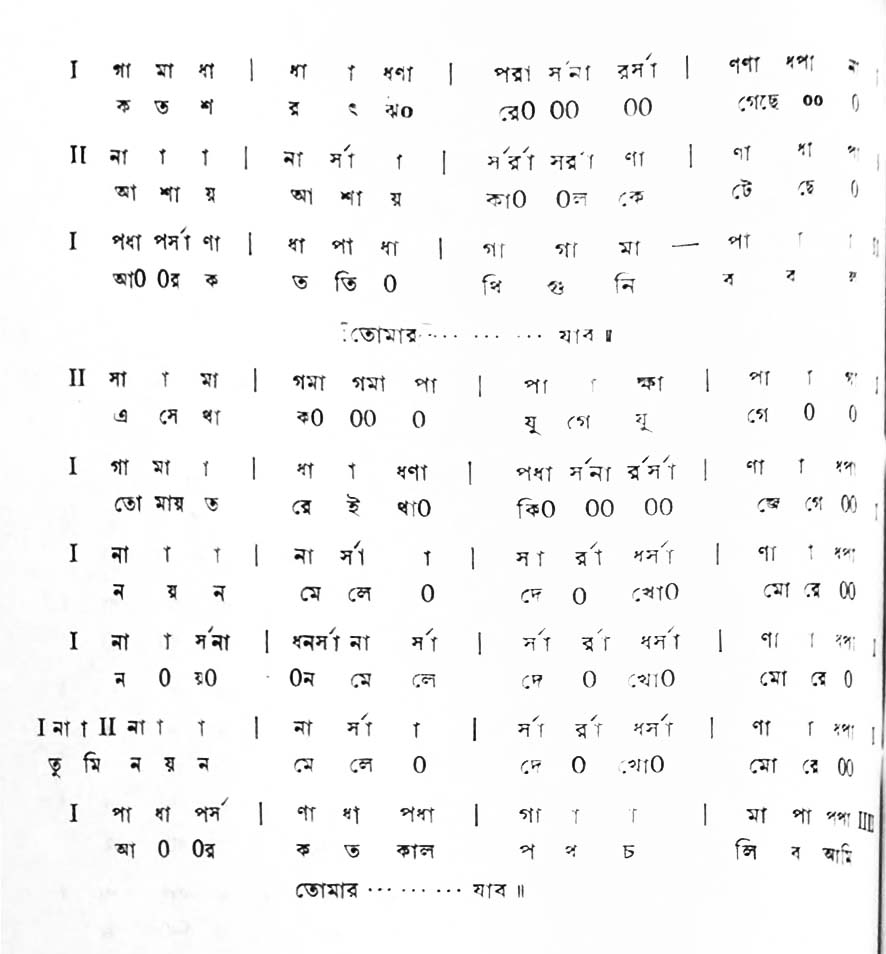 I গা মা ধা | ধা া ধণা | পরা র্সনা রর্সা | ণণা ধপা
ক ত শ র ৎ ঝ০ রে০ ০০ ০০ গেছে ০০ ০
II না া া | না র্সা া | র্সর্রা সরা ণা | ণা ধা পা
আ শা য় আ শা য় কা০ ০ল কে টে ছে ০
I পধা পর্সা ণা | ধা পা ধা | গা গা মা — পা া া
আ০ ০র ক ত তি ০ পি গু নি ব ব য়
তোমার ·········· যাব ॥
II সা া মা | গমা গমা পা | পা া হ্মা | পা া গা
এ সে থা ক০ ০০ ০ যু গে যু গে ০ ০
I গা মা া | ধা া ধণা | পধা র্সনা র্রর্সা | ণা া ধপা
তো মায় ত রে ই থা০ কি০ ০০ ০০ জে গে ০০
I না া া | না র্সা া | সা র্রা ধর্সা | ণা া ধপা
ন য় ন মে লে ০ দে ০ খো০ মো রে ০০
I না া র্সনা | ধনর্সা না র্সা | র্সা র্রা ধর্সা | ণা া ধপা I
ন ০ য়০ ০ন মে লে দে ০ খো০ মো রে ০
I না া II না া া | না র্সা া | র্সা র্রা ধর্সা | ণা া ধপা I
তু মি ন য় ন মে লে ০ দে ০ খো০ মো রে ০০
I পা ধা পর্স | ণা ধা পধা | গা া া | মা পা পপা IIII
আ ০ ০র ক ত কাল প থ চ লি ব আমি
তোমার ········· যাব ॥